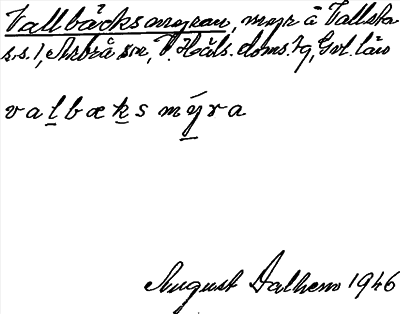 Vallbäcksmyran, myr å Vallsta
s.s.1, Arbrå sn, V. Häls. doms.hg, Gvl. län
valbæks mýra
August Dalhem 1946